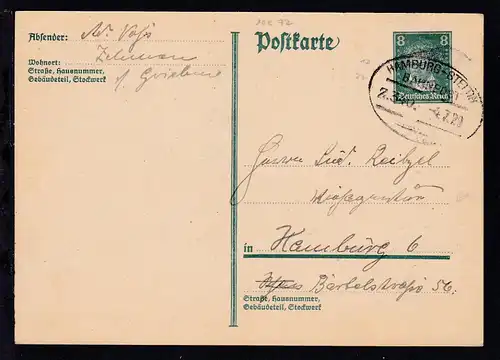 Absender: Ad. Voß
Wohnort:
Straße, Hausnummer,
Gebäudeteil, Stockwerk
Postkarte
8 8
Deutsches Reich
HAMBURG-STETTIN
BAHNPOST
4.7.29
Herrn Lud. Reitzel
in Hamburg 6
Bartelstraße 56.
Straße, Hausnummer,
Gebäudeteil, Stockwerk